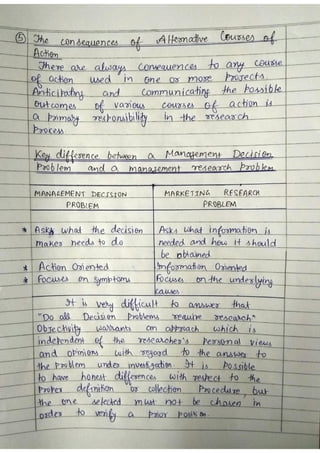 ⑤ The consequences of Alternative Courses of
Action.
There are always consequences to any course
of action used in one or more Projects.
Anticipating and communicating the Possible
Outcomes of various courses of action is
a Primary responsibility in the research
Process
Key difference between a Management Decision
Problem and a management research Problem
MANAGEMENT DECISION PROBLEM | MARKETING RESEARCH PROBLEM
* Asks what the decision | Asks what information is
makes needs to do | needed and how it should
be obtained
* Action Oriented | Information Oriented
* Focuses on Symptoms | Focuses on the underlying
causes
It is very difficult to answer that
"Do all Decision Problems require research"
Objectivity warrants an approach which is
independent of the researcher's Personal views
and opinions with regard to the answer to
the Problem under investigation It is Possible
to have honest differences with respect to the
Proper definition or collection Procedure, but
the one selected must not be chosen in
order to verify a Prior Position.